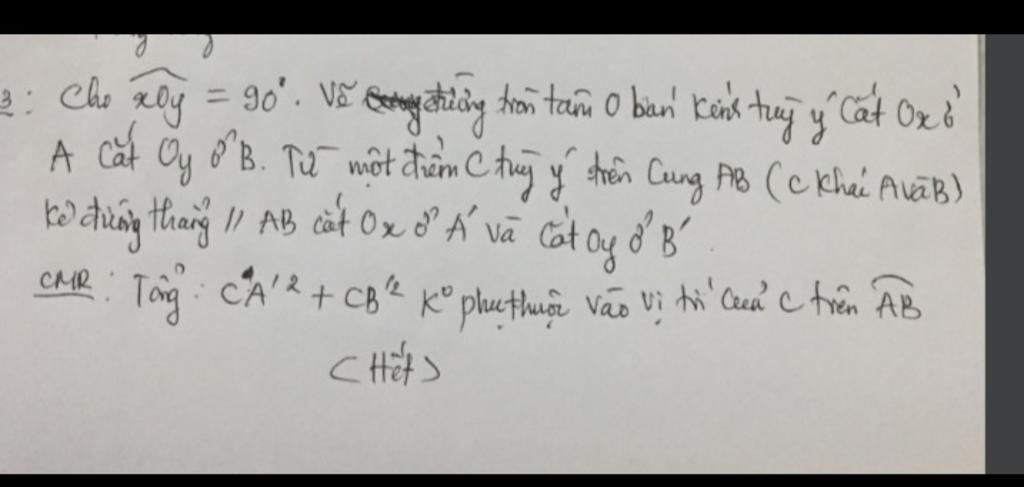 3: Cho xOy = 90°. Vẽ đường tròn tâm O bán kính tuỳ ý Cắt Ox ở
A Cắt Oy ở B. Từ một điểm C tuỳ ý trên Cung AB (C khác A và B)
Kẻ đường thẳng // AB cắt Ox ở A' và Cắt Oy ở B'.
CMR: Tổng: CA'² + CB'² K° phụ thuộc vào vị trí của C trên AB
<Hết>